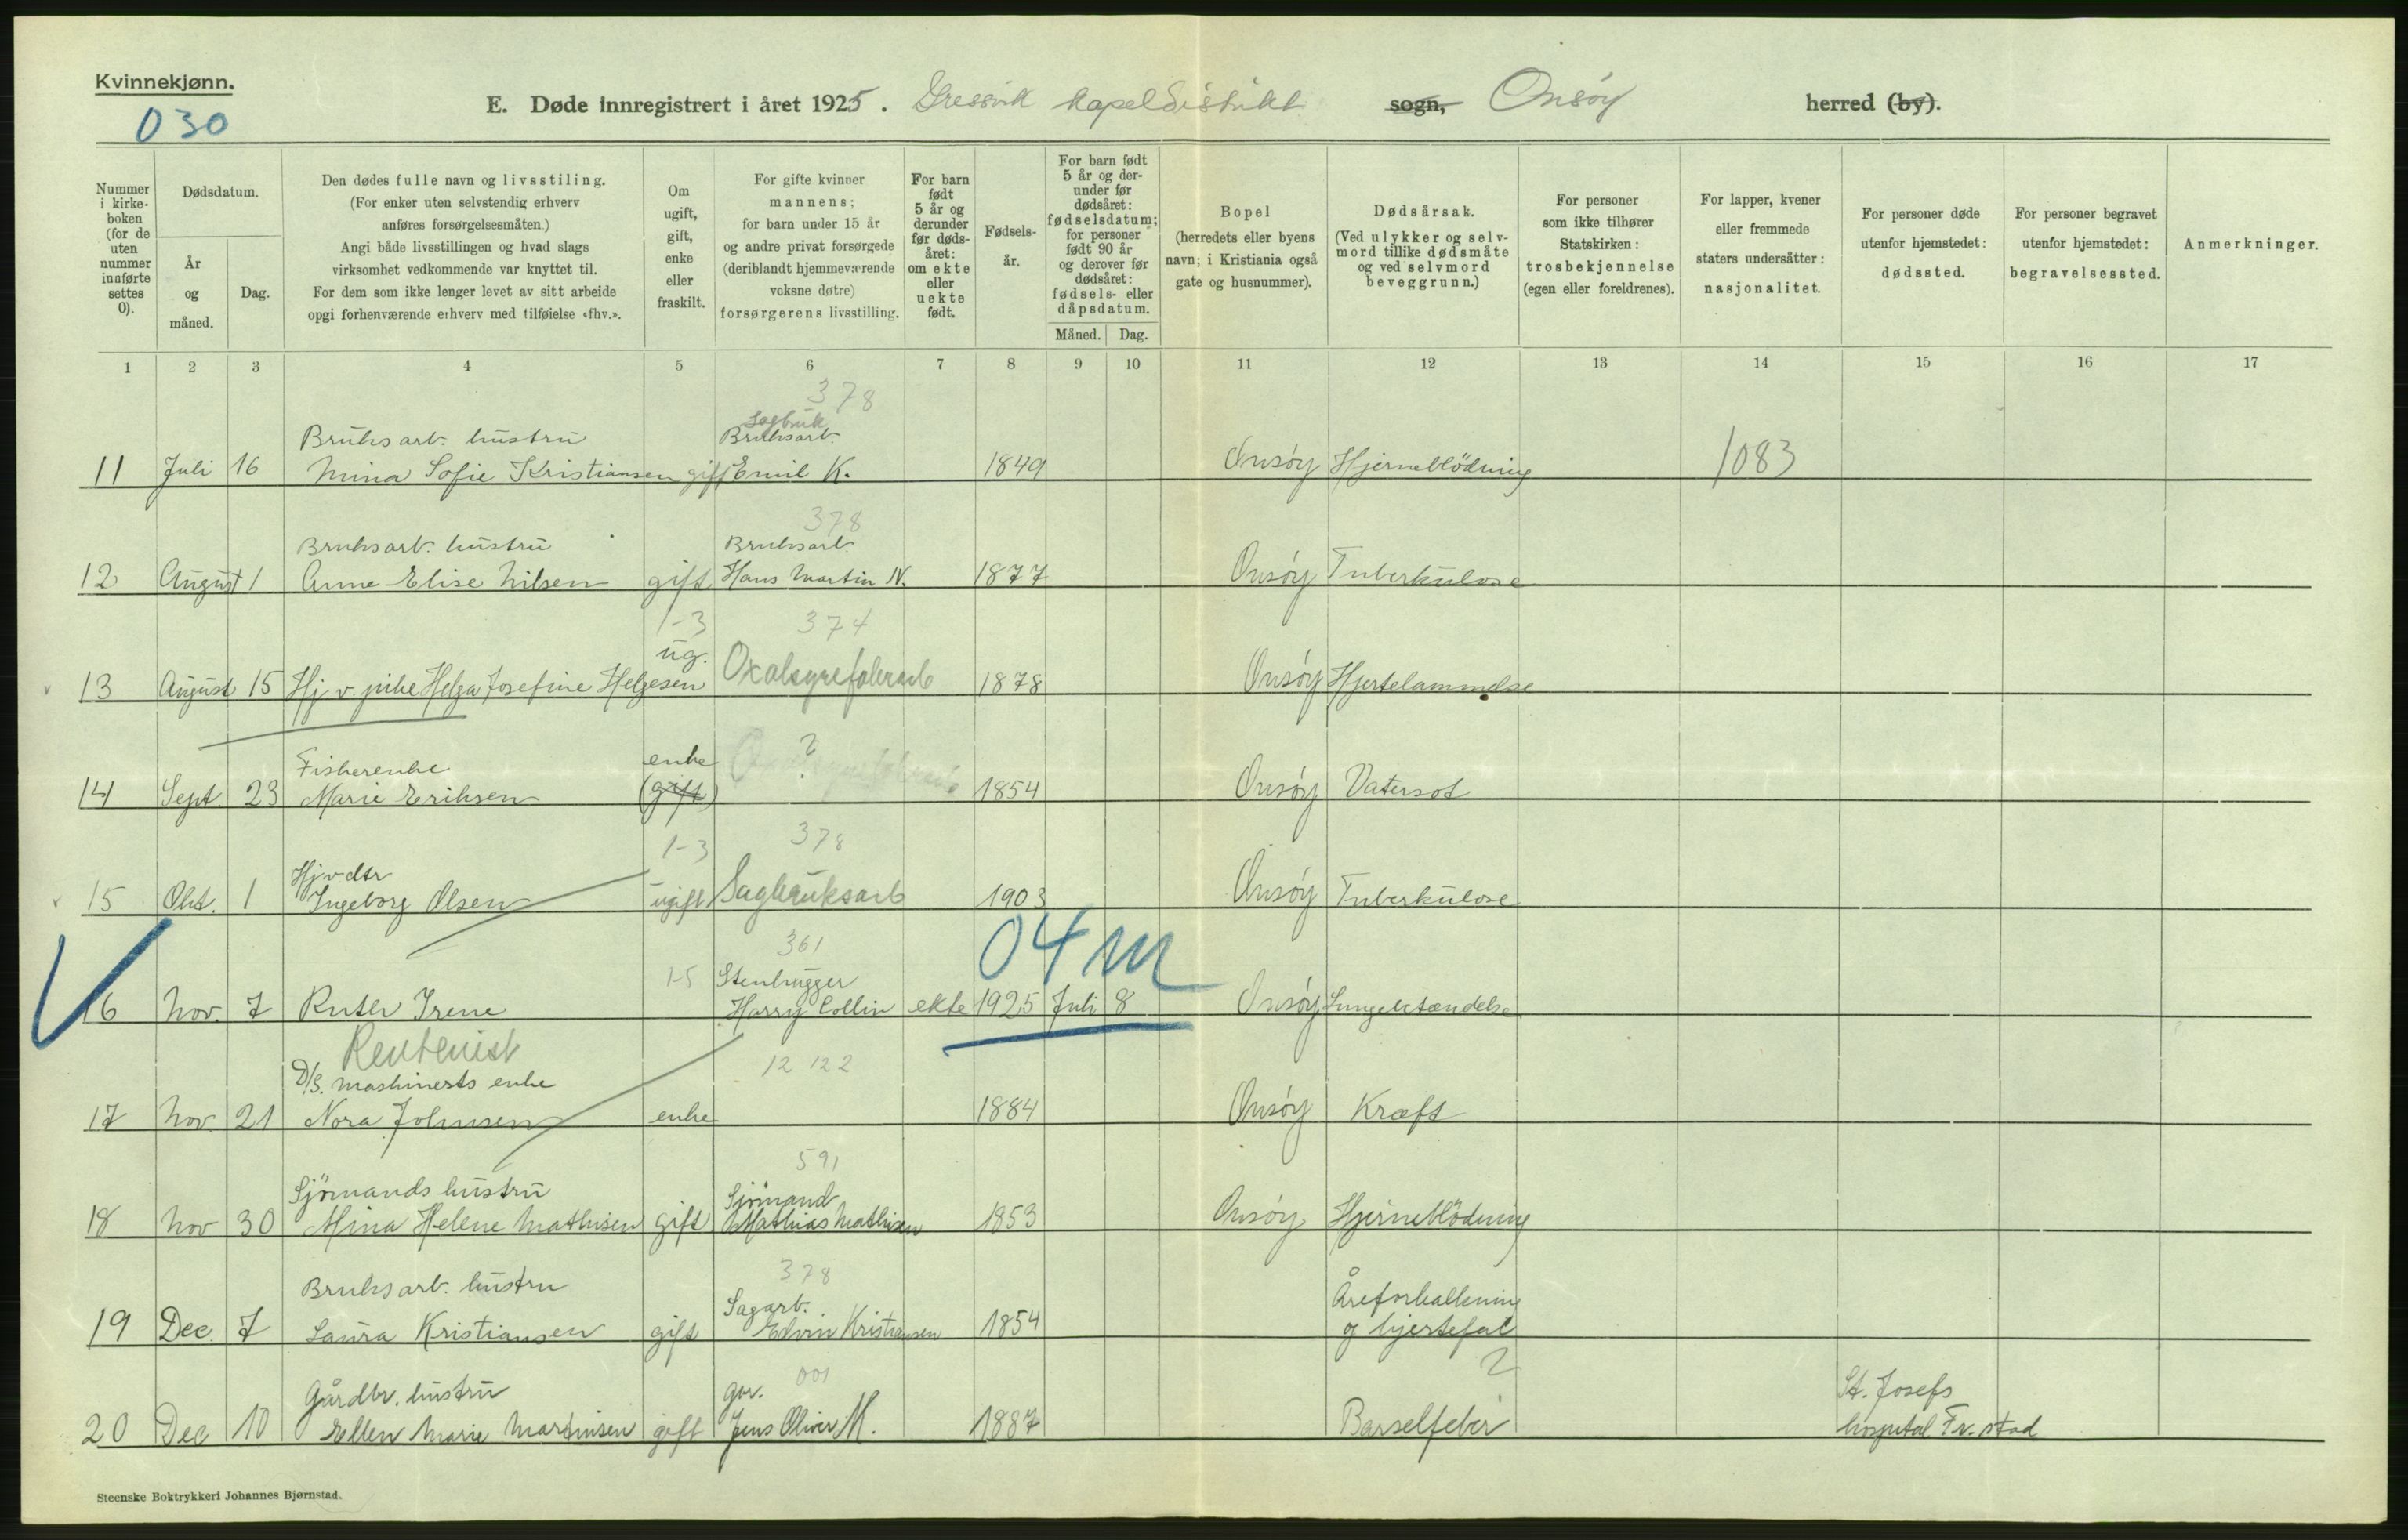 Kvinnekjønn.
030
E. Døde innregistrert i året 1925. Gressvik kapeldistrikt sogn, Onsøy herred (by).
Nummer i kirke-boken (for de uten nummer innførte settes 0).
Dødsdatum.
År og måned.
Dag.
Den dødes fulle navn og livsstiling.
(For enker uten selvstendig erhverv
anføres forsørgelsesmåten.)
Angi både livsstillingen og hvad slags
virksomhet vedkommende var knyttet til.
For dem som ikke lenger levet av sitt arbeide
opgi forhenværende erhverv med tilføielse «fhv.».
Om ugift, gift, enke eller fraskilt.
For gifte kvinner
mannens;
for barn under 15 år
og andre privat forsørgede
(deriblandt hjemmeværende
voksne døtre)
forsørgerens livsstilling.
For barn født 5 år og derunder før døds-året: om ekte eller uekte født.
Fødsels-år.
For barn født 5 år og der-under før dødsåret: fødselsdatum; for personer født 90 år og derover før dødsåret: fødsels- eller dåpsdatum.
Måned. Dag.
Bopel
(herredets eller byens
navn; i Kristiania også
gate og husnummer).
Dødsårsak.
(Ved ulykker og selv-
mord tillike dødsmåte
og ved selvmord
beveggrunn.)
For personer
som ikke tilhører
Statskirken:
trosbekjennelse
(egen eller foreldrenes).
For lapper, kvener
eller fremmede
staters undersåtter:
nasjonalitet.
For personer døde
utenfor hjemstedet:
dødssted.
For personer begravet
utenfor hjemstedet:
begravelsessted.
Anmerkninger.
1 2 3 4 5 6 7 8 9 10 11 12 13 14 15 16 17
378
Sagbruk
Bruksarb. hustru Bruksarb.
11 Juli 16 Mina Sofie Kristiansen gift Emil K. 1849 Onsøy Hjerneblödning 1083
378
Bruksarb. hustru Bruksarb.
12 August 1 Anne Elise Nilsen gift Hans Martin N. 1877 Onsøy Tuberkulose
1-3 374
ug.
13 August 15 Hj. v. pike Helga Josefine Helgesen Oxalsyrefabrarb 1878 Onsøy Hjertelammelse
Fiskerenke enke ?
14 Sept. 23 Marie Eriksen (gift) 1854 Onsøy Vatersot
1-3 378
Hjv dtr
15 Okt. 1 Ingeborg Olsen ugift Sagbruksarb 1903 Onsøy Tuberkulose
361 04 m
1-5 Stenhugger
16 Nov. 7 Ruth Irene Harry Collin ekte 1925 Juli 8 Onsøy Lungebtændelse
Rentenist
D/S. maskinists enke 12 122
17 Nov. 21 Nora Johnsen enke 1884 Onsøy Kræft
591
Sjömands hustru Sjömand
18 Nov 30 Mina Helene Mathisen gift Mathias Mathisen 1853 Onsøy Hjerneblödning
378
Bruksarb. hustru Sagarb. Åreforkalkning
19 Dec. 7 Laura Kristiansen gift Edvin Kristiansen 1854 og hjertefeil
2
001
Gårdbr. hustru gbr. St. Josefs
20 Dec 10 Ellen Marie Martinsen gift Jens Oliver M. 1887 Barselfeber hospital Fr.stad
Steenske Boktrykkeri Johannes Bjørnstad.